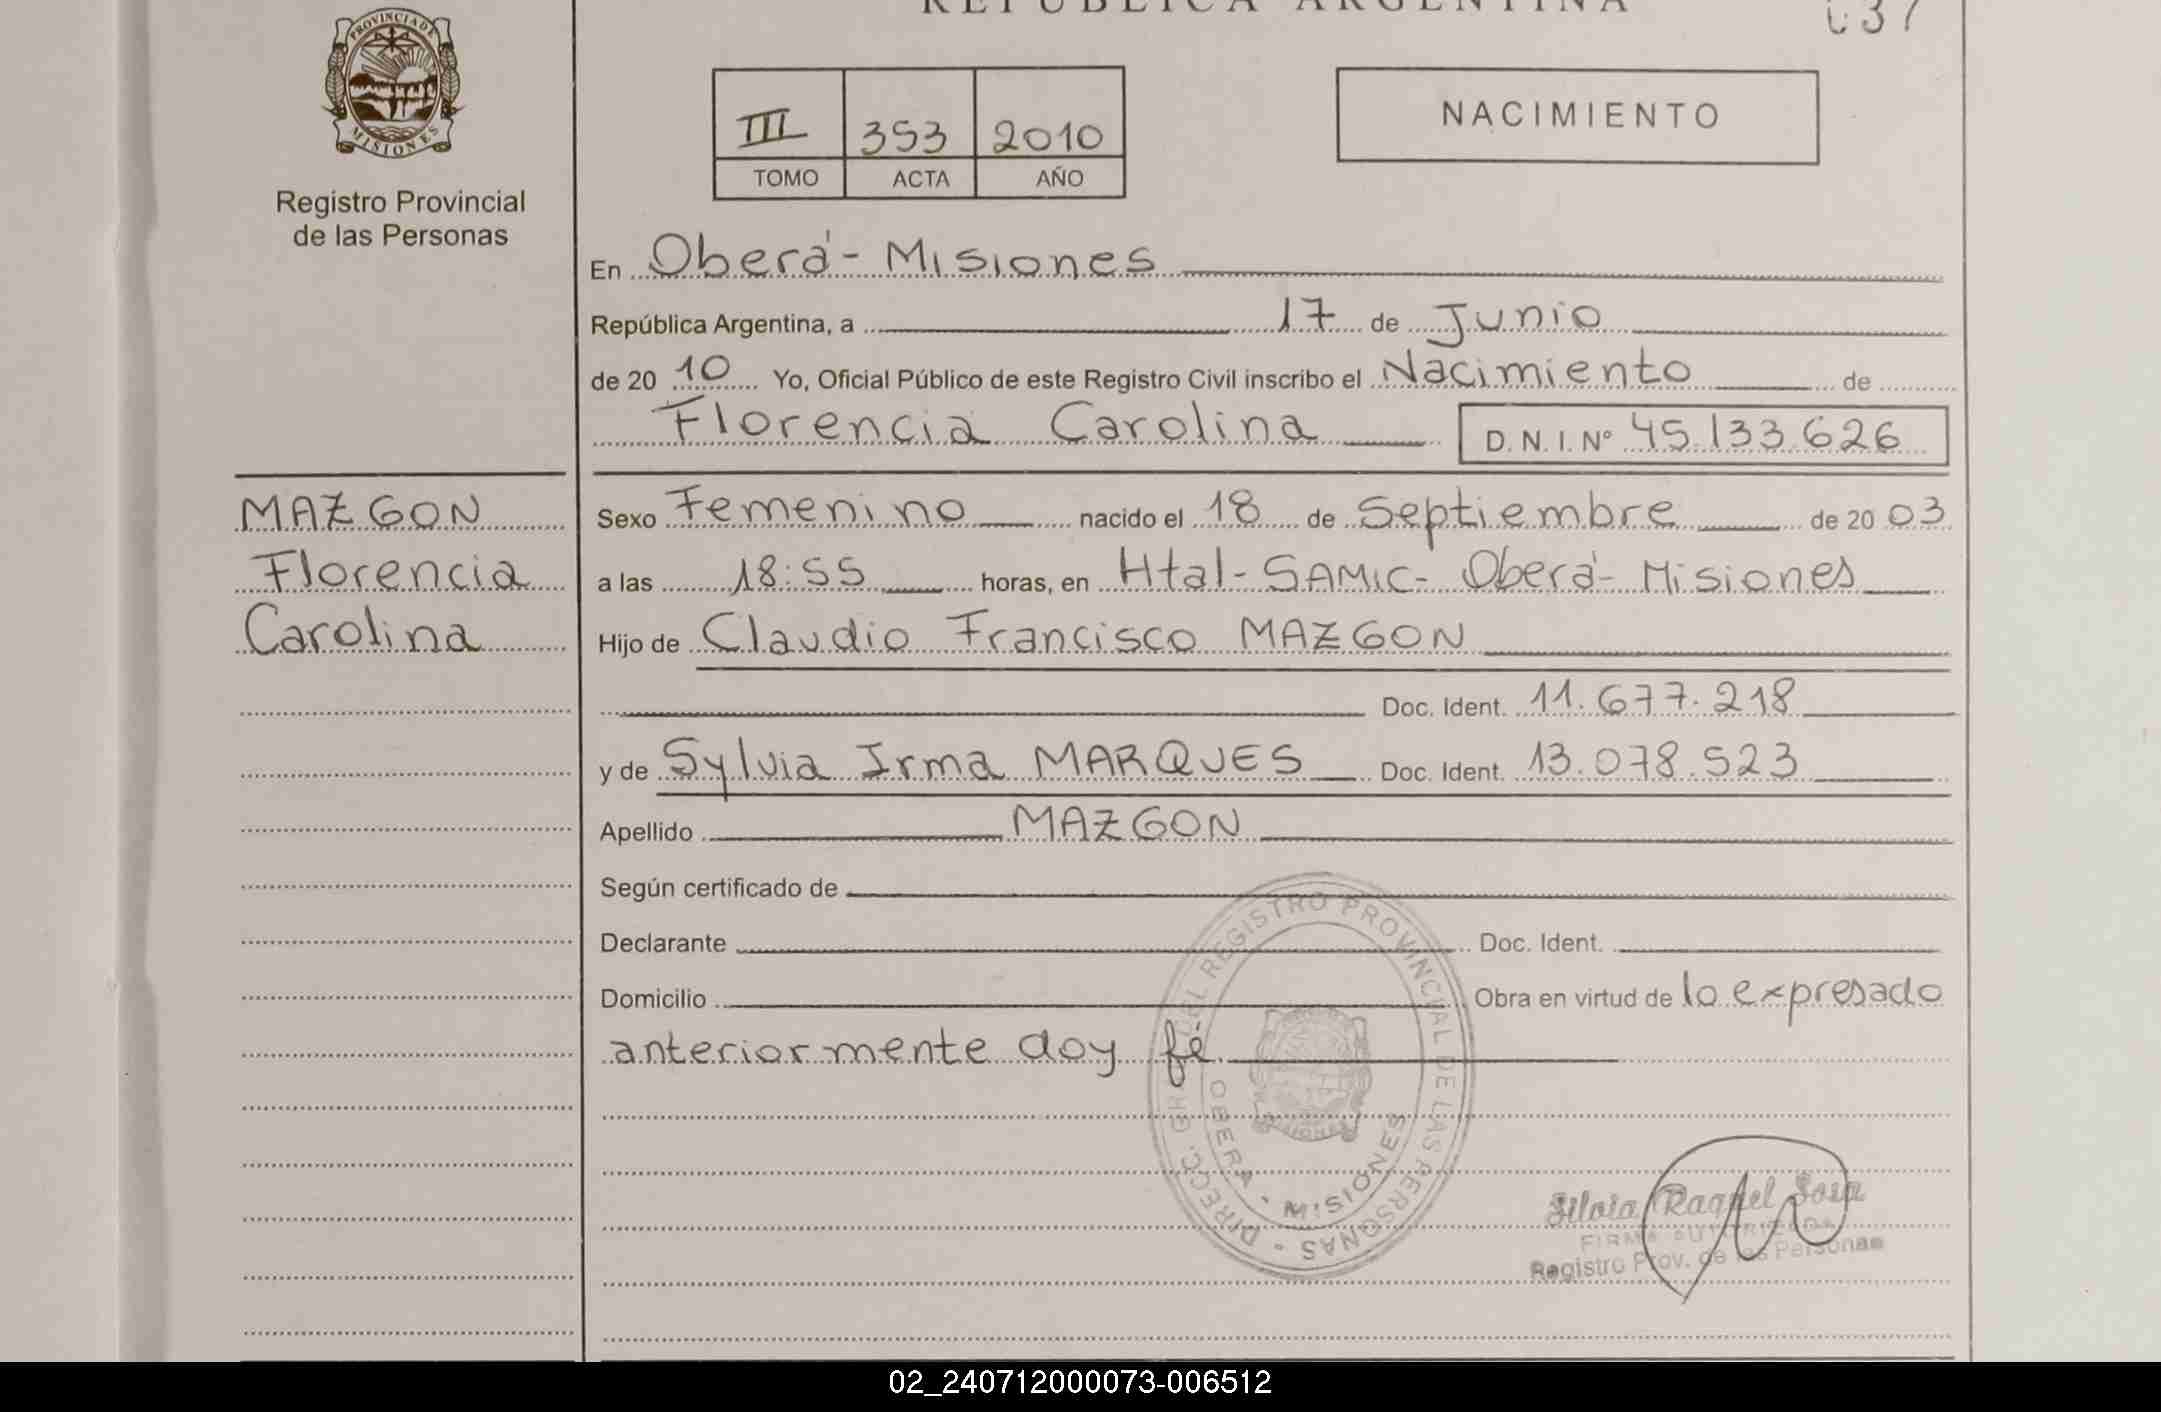 REPUBLICA ARGENTINA
037
PROVINCIA DE
MISIONES
Registro Provincial
de las Personas
III 353 2010
TOMO ACTA AÑO
NACIMIENTO
En Oberá - Misiones
República Argentina, a 17 de Junio
de 20 10 Yo, Oficial Público de este Registro Civil inscribo el Nacimiento de
Florencia Carolina D. N. I. Nº 45.133.626
MAZGON
Florencia
Carolina
Sexo Femenino nacido el 18 de Septiembre de 20 03
a las 18:55 horas, en Htal - SAMIC - Oberá - Misiones
Hijo de Claudio Francisco MAZGON
Doc. Ident. 11.677.218
y de Sylvia Irma MARQUES Doc. Ident. 13.078.523
Apellido MAZGON
Según certificado de
Declarante Doc. Ident.
Domicilio Obra en virtud de lo expresado
anteriormente doy fé
DIRECC. GRAL. DEL REGISTRO PROVINCIAL DE LAS PERSONAS -
OBERA - MISIONES
Silvia Raquel Sosa
FIRMA AUTORIZADA
Registro Prov. de las Personas
02_240712000073-006512